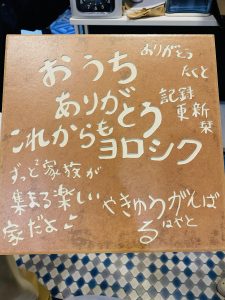 ありがとう
たくと
おうち
ありがとう
これからも
ヨロシク
記録
更新
栞
ずっと家族が
集まる楽しい
家だよ♪
やきゅうがんば
る
はやと